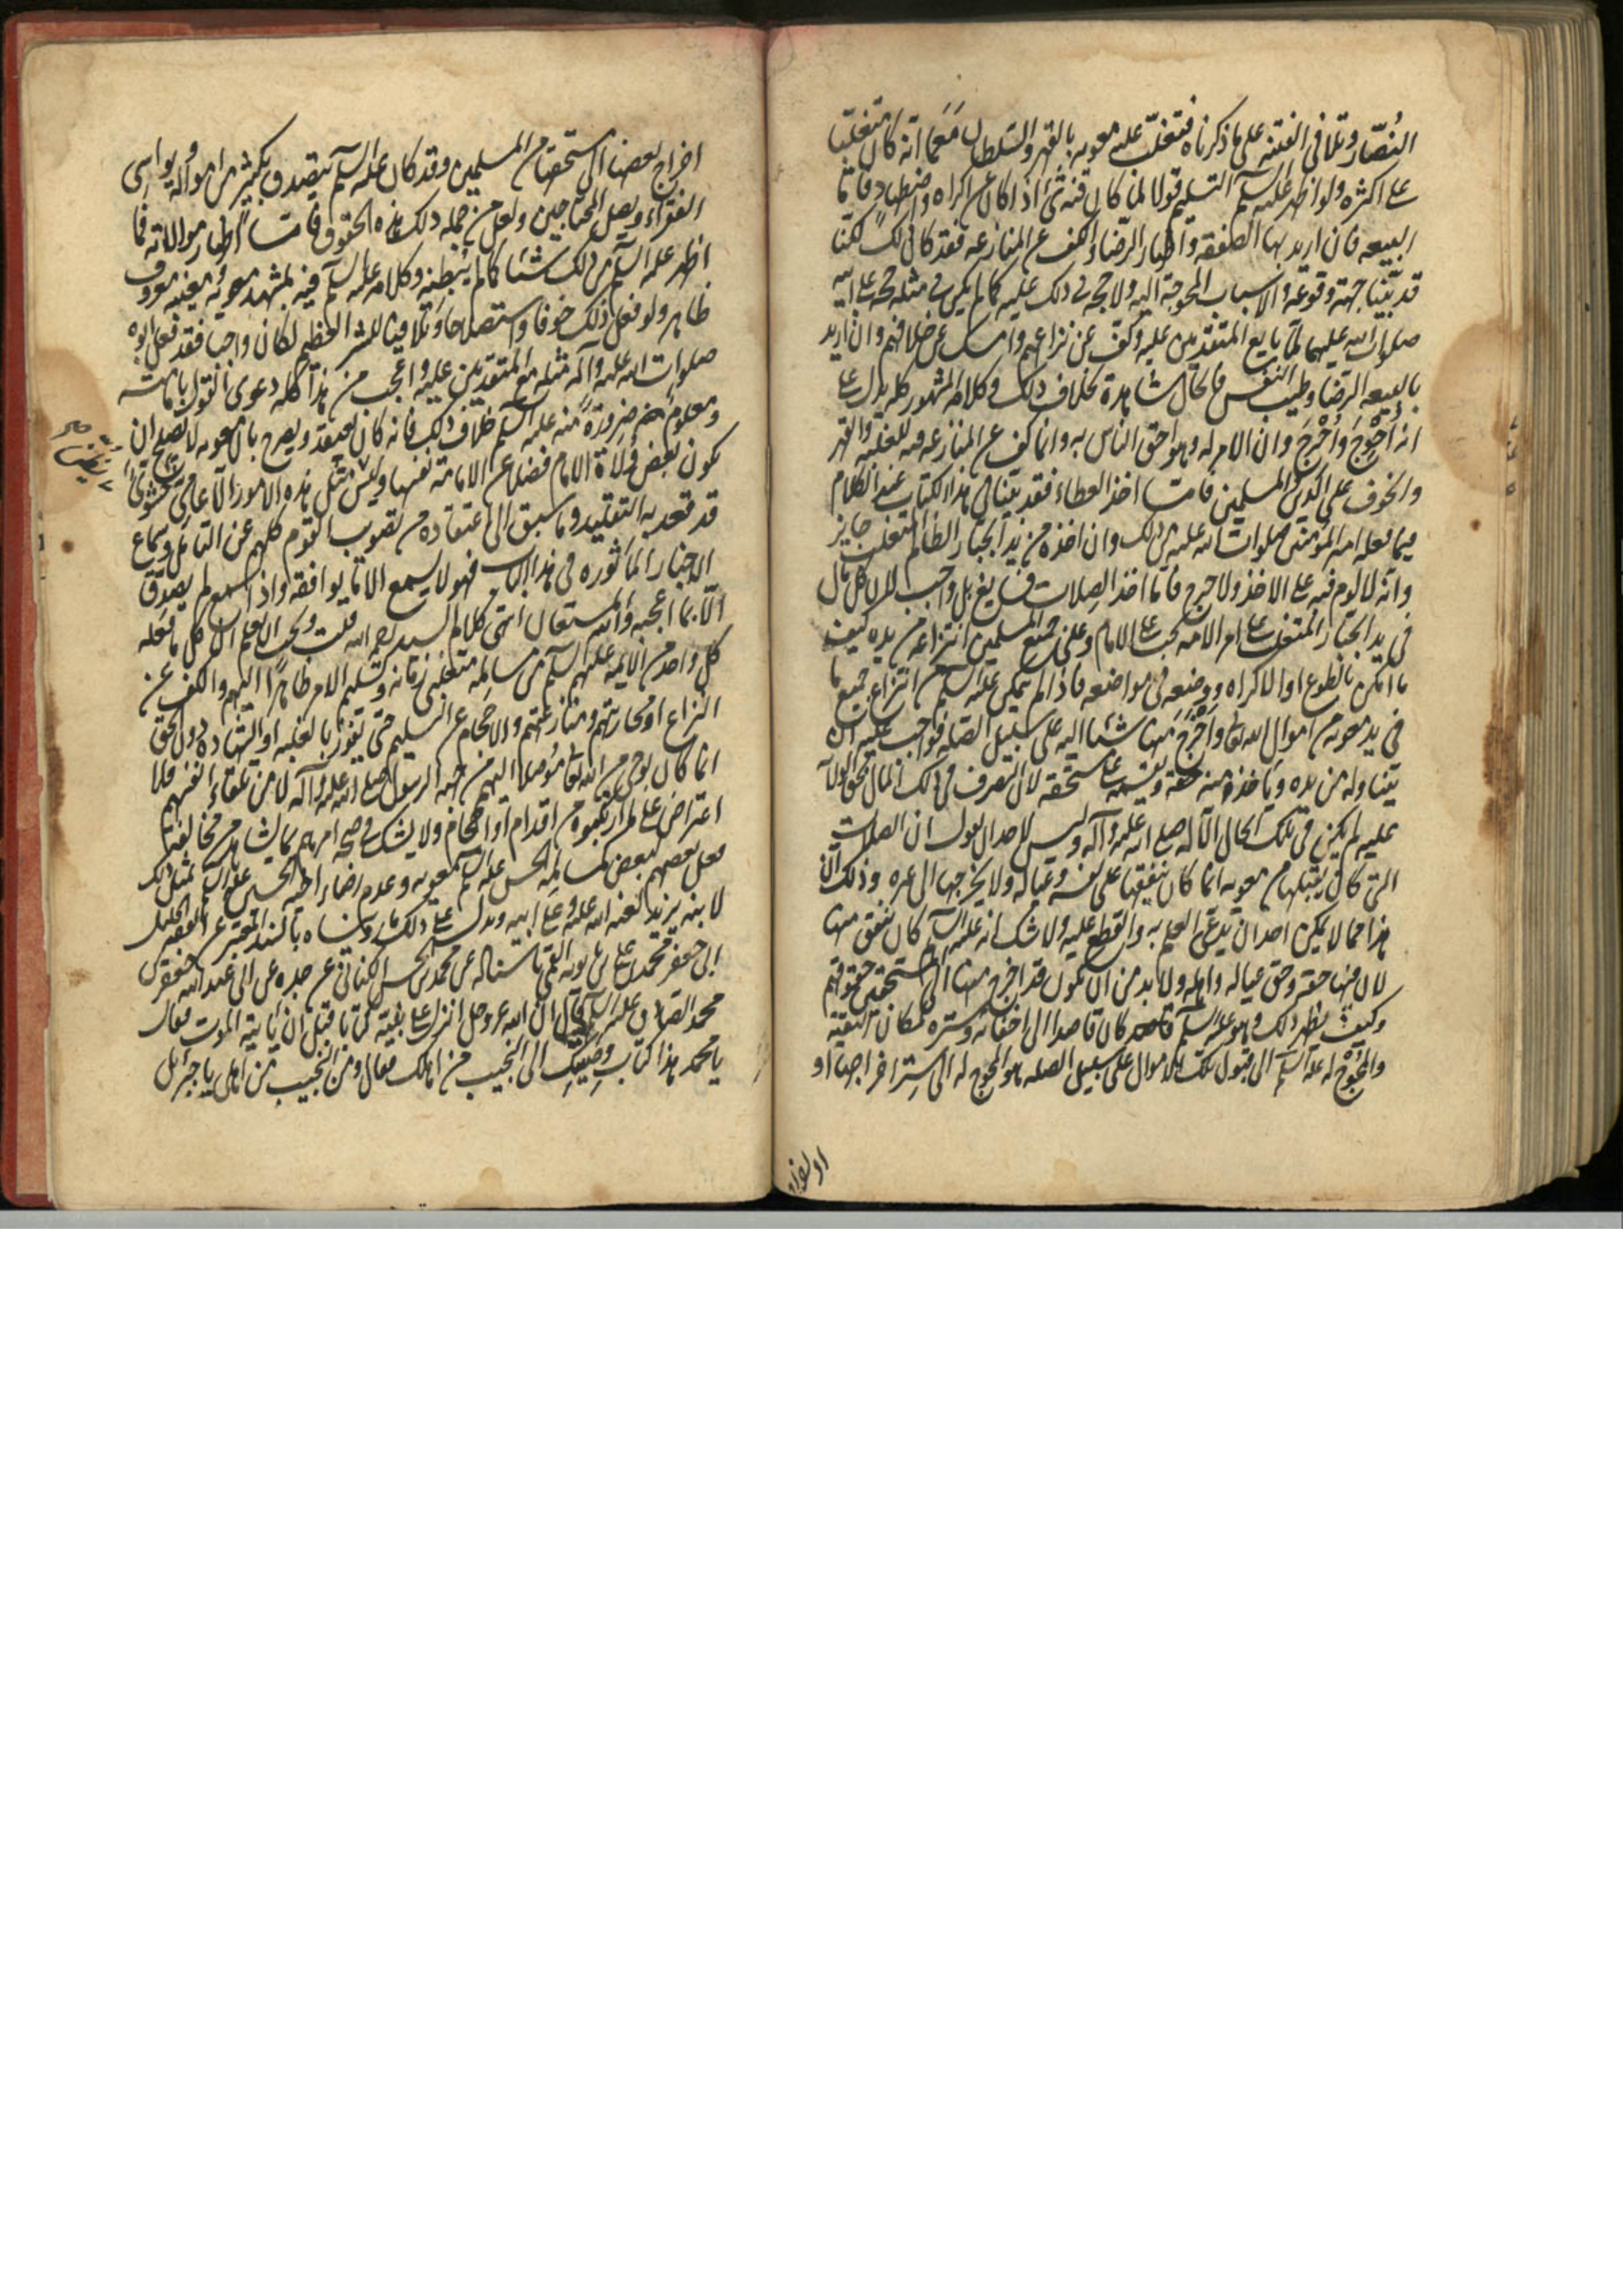 النُصّار وتلافى الفتنه على ما ذكرناه فتغلّب عليه معويه بالقهر والسّلطان مَعَما انه كان متغلّبا
على اكثره ولو اظهر عليه السلم التسليم قولا لما كان فيه شئ اذا كان عن اكراه واضطهاد فاما
البيعه فان اريد بها الصفقه واظهار الرّضاء والكف عن المنازعه فقد كان ذلك لكنّا
قد بيّنا جهة وقوعه والاسباب المحوجة اليه ولا حجه فى ذلك عليه كما لم يكن فى مثله حجه على ابيه
صلوات الله عليهما لمّا بايع المتقدمين عليه وكفّ عن نزاعهم وامسك عن خلافهم وان اريد
بالبيعه الرّضا وطيب النفس فالحال شاهدة بخلاف ذلك وكلامه المشهور كله يدل على
انه أُحْوِجَ وأُحْرِجَ وان الامر له وهو احق الناس به وانما كف عن المنازعه فيه للغلبه والقهر
والخوف على الدين والمسلمين فامّا اخذ العطاء فقد بيّنا فى هذا الكتاب عند الكلام
فيما فعله امير المؤمنين صلوات الله عليه من ذلك وان اخذه من يد الجبّار الظالم المتغلب جايز
وانّه لا لوم فيه على الاخذ ولا حرج فامّا اخذ الصِلات فسايغ بل واجب لان كل مال
فى يد الجبّار المتغلب على امر الامه يجب على الامام وعلى جميع المسلمين انتزاعه من يده كيف
ما امكن بالطوع او الاكراه ووضعِه فى مواضعه فاذا لم يتمكن عليه السلم من انتزاع جميع ما
فى يد معويه من اموال الله تعالى واَخْرَجَ منها شيئا اليه على سبيل الصّله فواجب عليه ان
يتناوله من يده ويأخذ منه حقه ويقسمه على مستحقه لان التصرف فى ذلك المال بحق الولاية
عليه لم يكن فى تلك الحال الّا له صلى الله عليه وآله وليس لاحد ان يقول ان الصلات
التى كان يقبلها من معويه انما كان ينفقها على نفسه وعياله ولا يخرجها الى غيره وذلك انّ
هذا مما لا يمكن احد ان يدّعى العلم به والقطع عليه ولا شك انه عليه السلم كان ينفق منها
لان فيها حقه وحق عياله واهله ولا بد من ان يكون قد اخرج منها الى المستحقين حقوقهم
وكيف يظهر ذلك وهو عليه السلم كان قاصدا الى اخفائه وستره لمكان التقيّة
والمُحْوِجُ له عليه السلم الى قبول تلك الاموال على سبيل الصله هو المحوج له الى سِتر اخراجها او
اخراج بعضها الى مستحقها من المسلمين وقد كان عليه السلم يتصدق بكثير من امواله ويواسِى
الفقراءَ ويصل المحتاجين ولعل من جمله ذلك هذه الحقوق فامّا اظهار موالاته فما
اظهر عليه السلم من ذلك شيئا كما لم يُبْطِنه وكلامه عليه السلم فيه بمشهد معويه ومغيبه معروف
ظاهر ولو فعل ذلك خوفا واستصلاحا وتلافيا للشر العظيم لكان واجبا فقد فعل ابوه
صلوات الله عليه وآله مثله مع المتقدمين عليه واعجب من هذا كله دعوى القول بامامته
ومعلوم ضرورةً منه عليه السلم خلاف ذلك فانه كان يعتقد ويصرح بان معويه لا يصلح ان
يكون بعض وُلاة الامام فضلا عن الامامة نفسها وليس يظن مثل هذه الامور الّا عامى حشوىّ
قد قعد به التقليد وما سبق الى اعتقاده من تصويب القوم كلهم عن التأمّل وسماع
الاخبار المأثوره فى هذا الباب فهو لا يسمع الا ما يوافقه واذا سمع لم يصدّق
الّا بما اعجبه والله المستعان انتهى كلام السيد رحمه الله قلت ويجب ان يعلم ان كل ما فعله
كل واحد من الايمه عليهم السلم من مسالمه متغلبى زمانه وتسليم الامر ظاهرًا اليهم والكف عن
النزاع او محاربتهم ومنازعتهم والاحجام عن التسليم حتى يفوز بالغلبه او الشهاده دون الحق
انما كان بوحى من الله تعالى مُوصلا اليهم من جهه الرسول صلى الله عليه وآله لا من تلقاء انفسهم فلا
اعتراض على ما ارتكبوه من اقدام او احجام ولا يشك فى صحه امرهم بما يشاهد من مخالفه
فعل بعضهم لبعض كمسالمه الحسن عليه السلم لمعويه وعدم ارضاء اخيه الحسين عليه السلم بمثل ذلك
لابنه يزيد لعنه الله عليه وعلى ابيه ويدل على ذلك ما رويناه بالسند المعتبر عن الفقيه الجليل
ابى جعفر محمد بن على بن بابويه القمى باسناده عن محمد بن الحسن الكنانى عن جده عن ابى عبد الله جعفر بن
محمد الصادق عليه السلم قال ان الله عز وجل انزل على نبيّه كتابا قبل ان يأتيه الموت فقال
يا محمد هذا كتاب وصيّتك الى النجيب من اهلك فقال ومن النجيب من اهلى يا جبرئيل